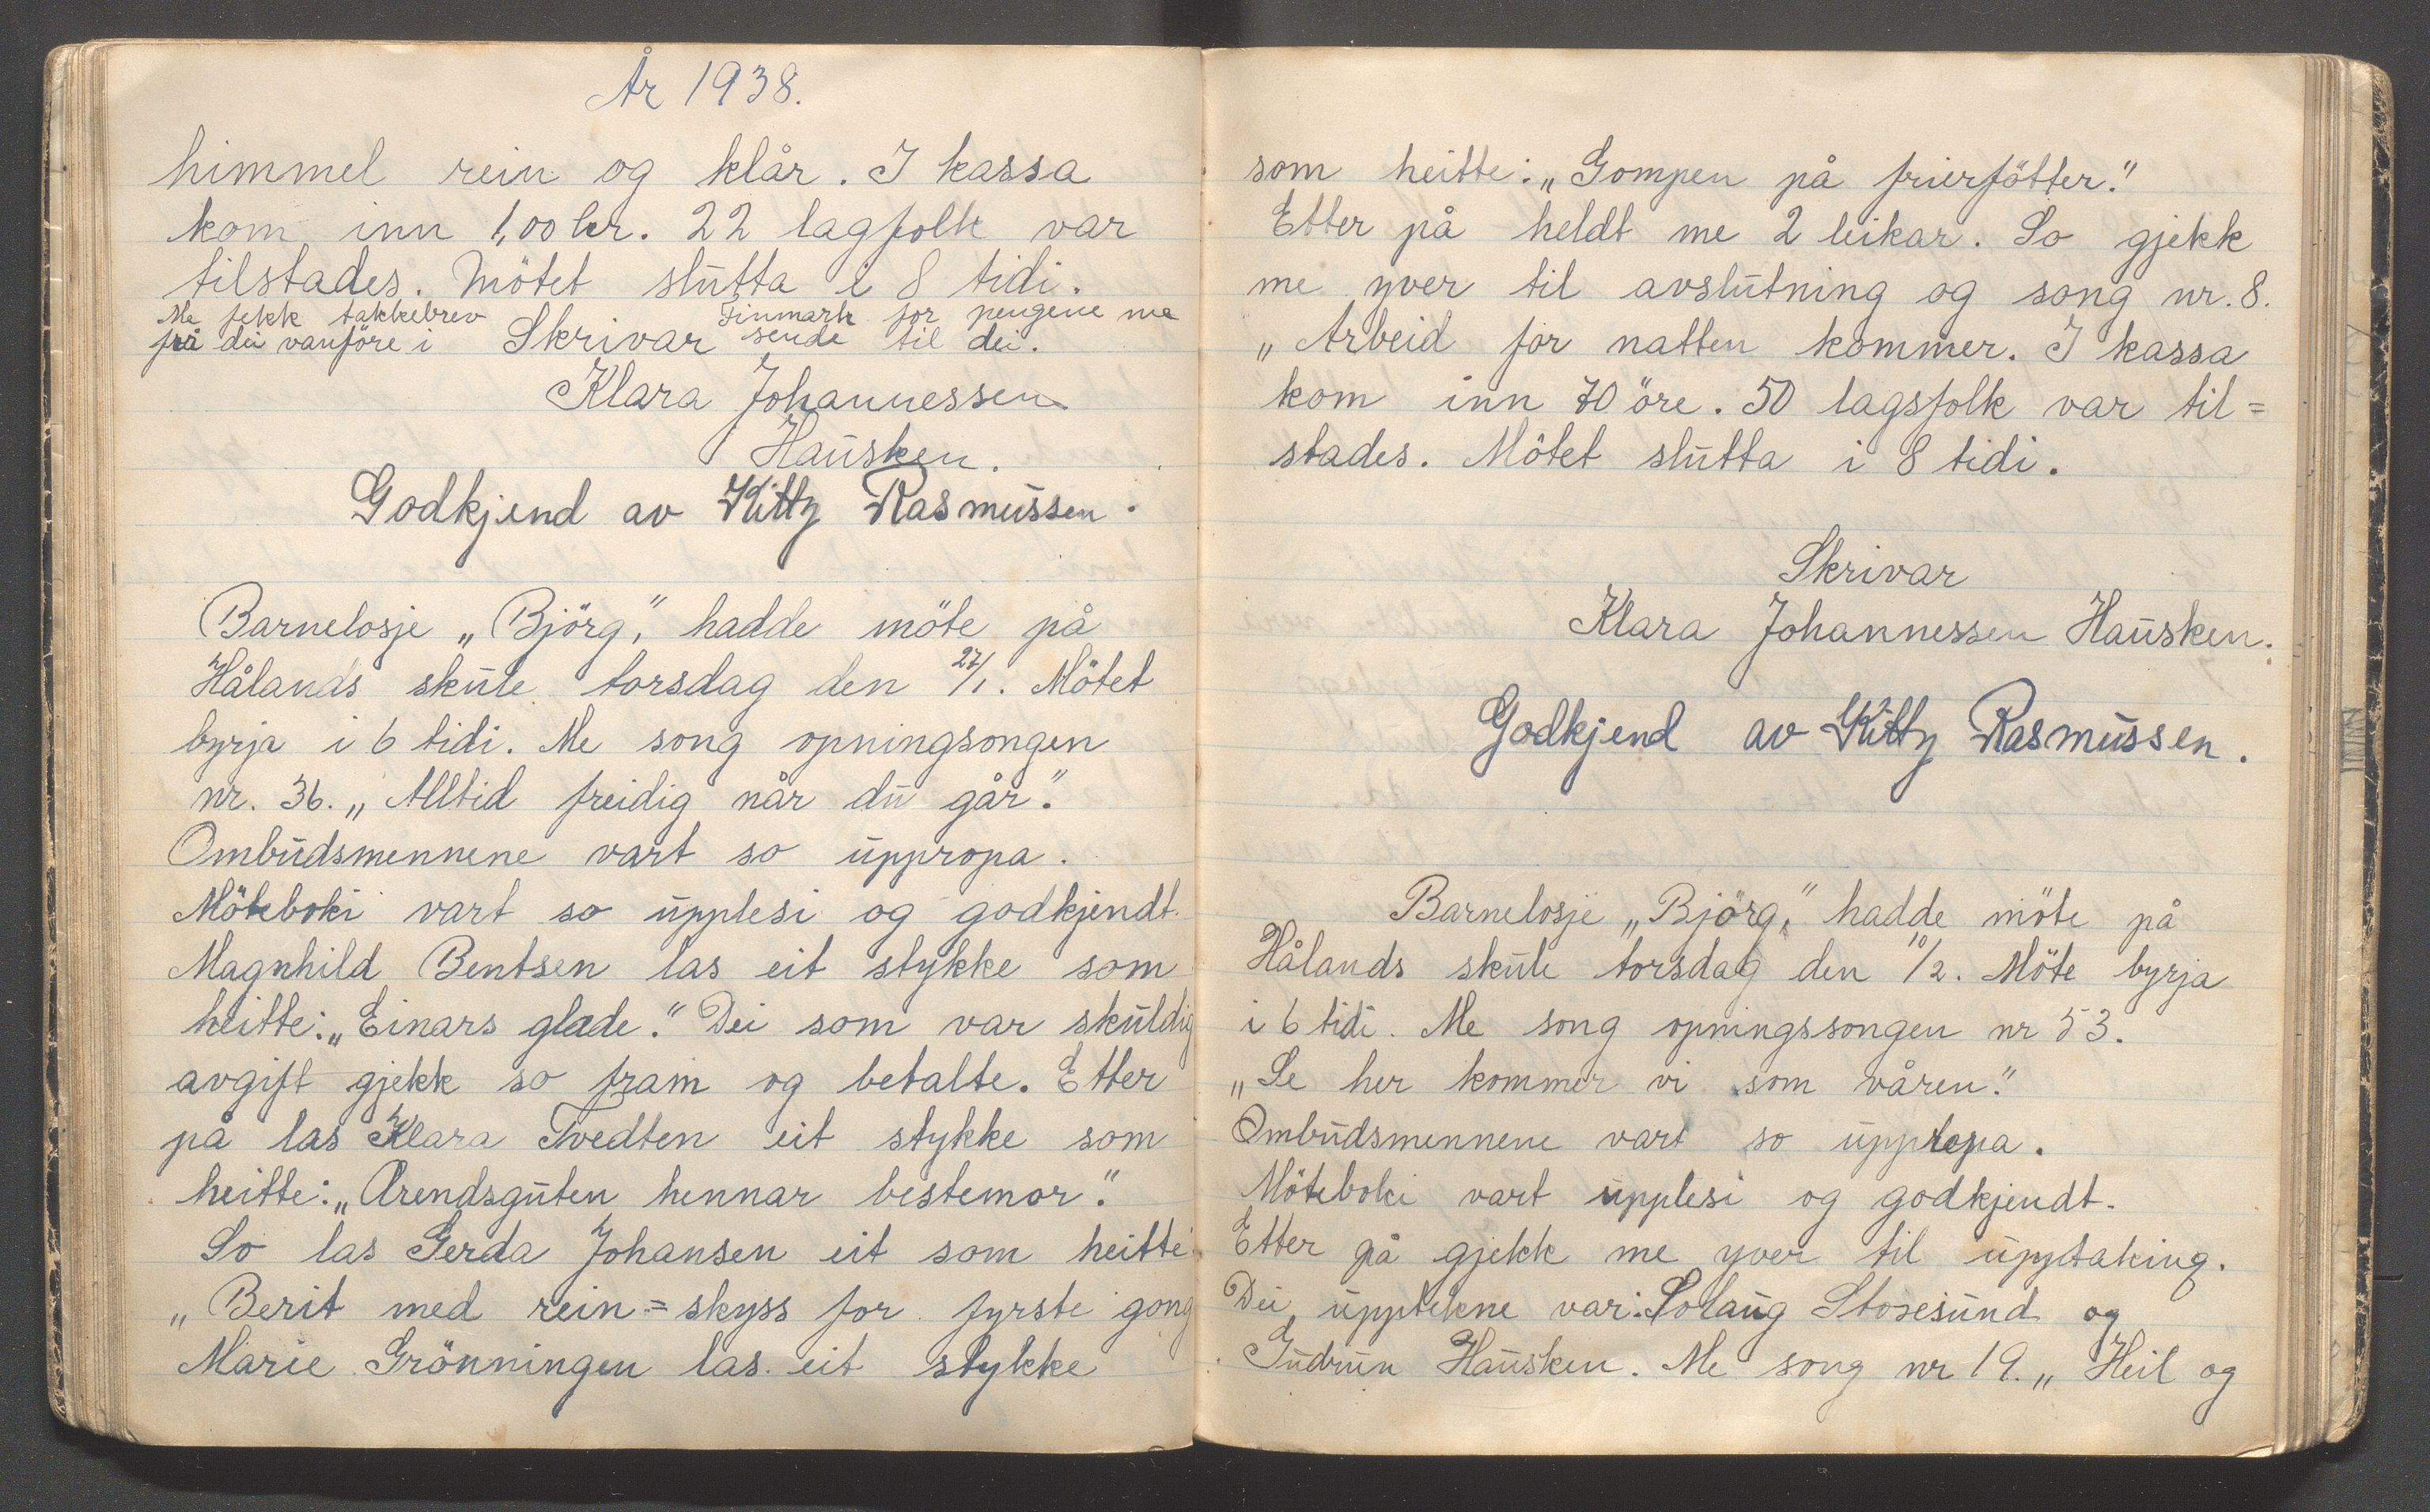 År 1938.
himmel rein og klår. I kassa
kom inn 1,00 kr. 22 lagfolk var
tilstades. Mötet slutta i 8 tidi.
Me fekk takkebrev Finmark for pengene me
frå dei vanföre i Skrivar sende til dei.
Klara Johannessen
Hausken.
Godkjend av Kitty Rasmussen.
Barnelosje „Björg," hadde möte på
Hålands skule torsdag den 27/1. Mötet
byrja i 6 tidi. Me song opningsongen
nr. 36. „Alltid freidig når du går."
Ombudsmennene vart so uppropa.
Möteboki vart so upplesi og godkjendt.
Magnhild Bentsen las eit stykke som
heitte: „Einars glede." Dei som var skuldig
avgift gjekk so fram og betalte. Etter
på las Klara Tvedten eit stykke som
heitte: „Arendsguten hennar bestemor."
So las Gerda Johansen eit som heitte
„Berit med rein=skyss for fyrste gong
Marie Grönningen las eit stykke
som heitte: „Gompen på frierfötter."
Etter på heldt me 2 leikar. So gjekk
me yver til avslutning og song nr. 8.
„Arbeid for natten kommer. I kassa
kom inn 70 öre. 50 lagsfolk var til=
stades. Mötet slutta i 8 tidi.
Skrivar
Klara Johannessen Hausken.
Godkjend av Kitty Rasmussen.
Barnelosje „Björg," hadde möte på
Hålands skule torsdag den 10/2. Möte byrja
i 6 tidi. Me song opningssongen nr 53.
„Se her kommer vi som våren."
Ombudsmennene vart so uppropa.
Möteboki vart upplesi og godkjendt.
Etter på gjekk me yver til upptaking.
Dei upptekne var: Solaug Stosesund og
Gudrun Hausken. Me song nr 19. „Heil og